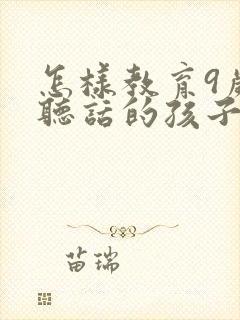 怎樣教育9歲
聽話的孩子
苗瑞